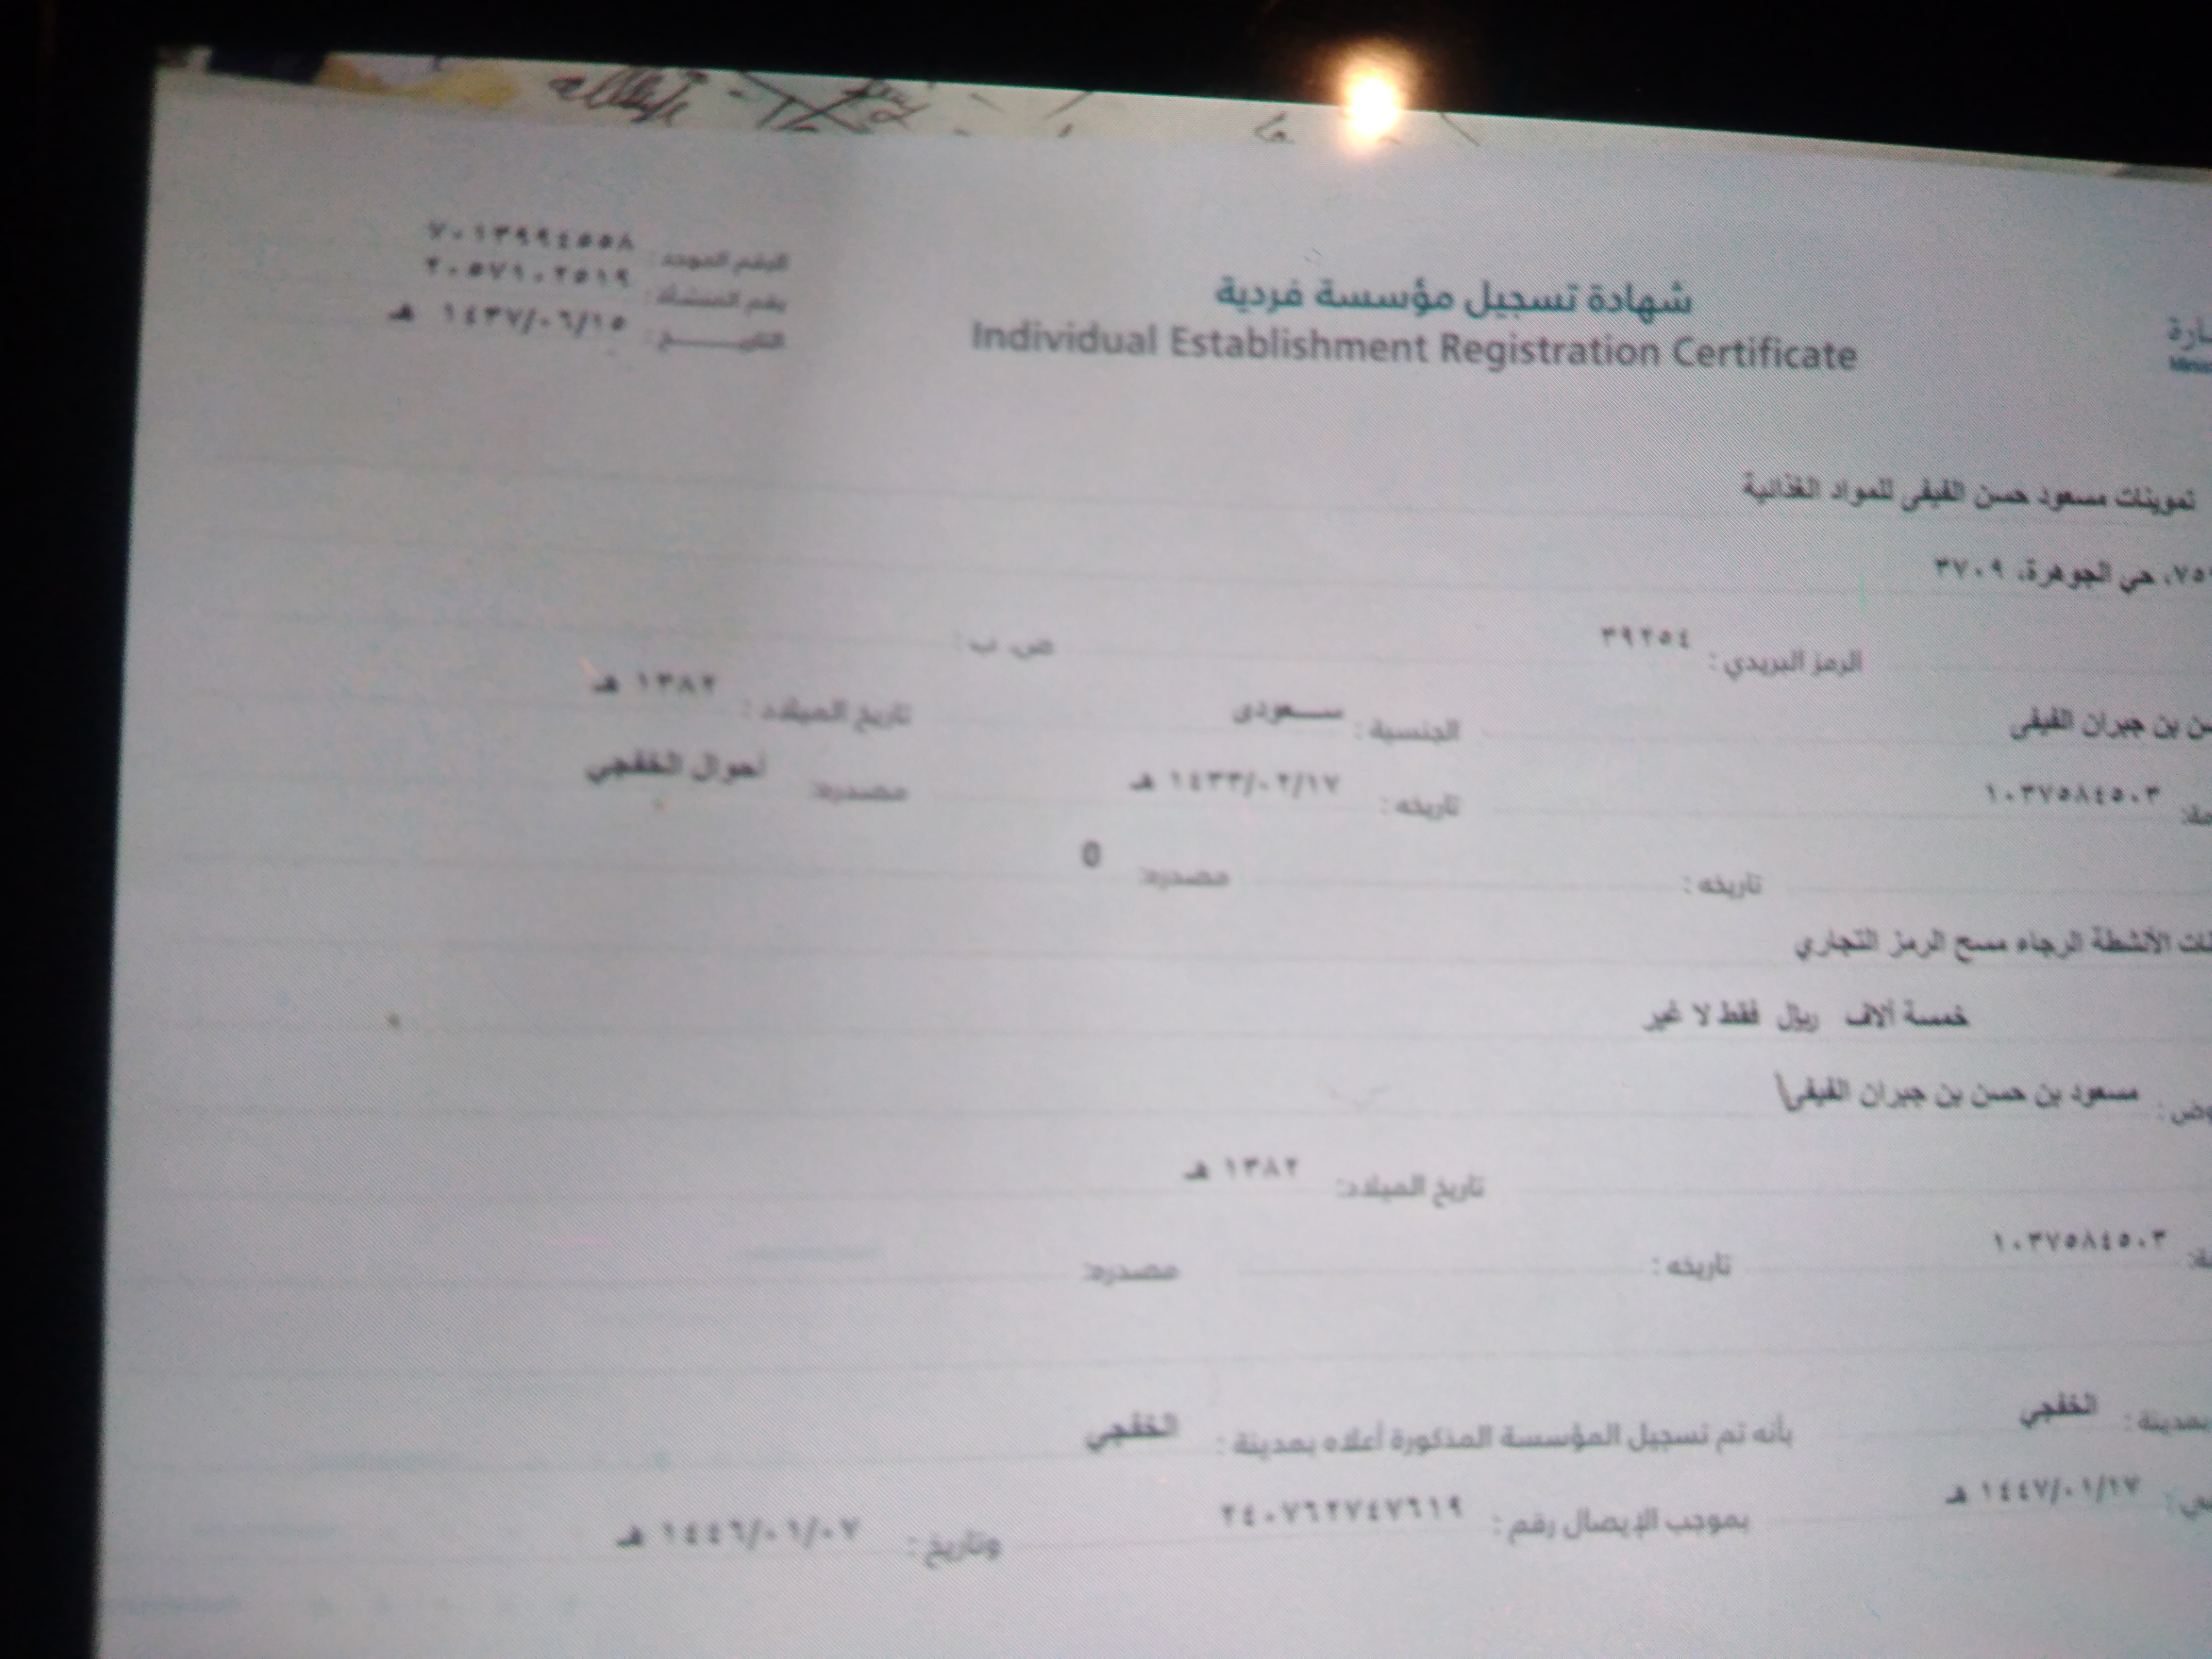 شهادة تسجيل مؤسسة فردية
Individual Establishment Registration Certificate
الرقم الموحد : ٧٠١٣٩٩٤٥٥٨
رقم المنشأة : ٢٠٥٧١٠٢٥١٩
التاريخ : ١٤٣٧/٠٦/١٥ هـ
تموينات مسعود حسن الفيفى للمواد الغذائية
حي الجوهرة، ٣٧٠٩
الرمز البريدي : ٣٩٢٥٤ ص. ب :
بن جبران الفيفى الجنسية : سعودى تاريخ الميلاد : ١٣٨٢ هـ
١٠٣٧٥٨٤٥٠٣ تاريخه : ١٤٣٣/٠٢/١٧ هـ مصدره: أحوال الخفجي
تاريخه : مصدره: 0
الأنشطة الرجاء مسح الرمز التجاري
خمسة ألاف ريال فقط لا غير
مسعود بن حسن بن جبران الفيفى
تاريخ الميلاد: ١٣٨٢ هـ
١٠٣٧٥٨٤٥٠٣ تاريخه : مصدره:
بمدينة : الخفجي بأنه تم تسجيل المؤسسة المذكورة أعلاه بمدينة : الخفجي
١٤٤٧/٠١/١٧ هـ بموجب الإيصال رقم : ٢٤٠٧٦٢٧٤٧٦١٩ وتاريخ : ١٤٤٦/٠١/٠٧ هـ